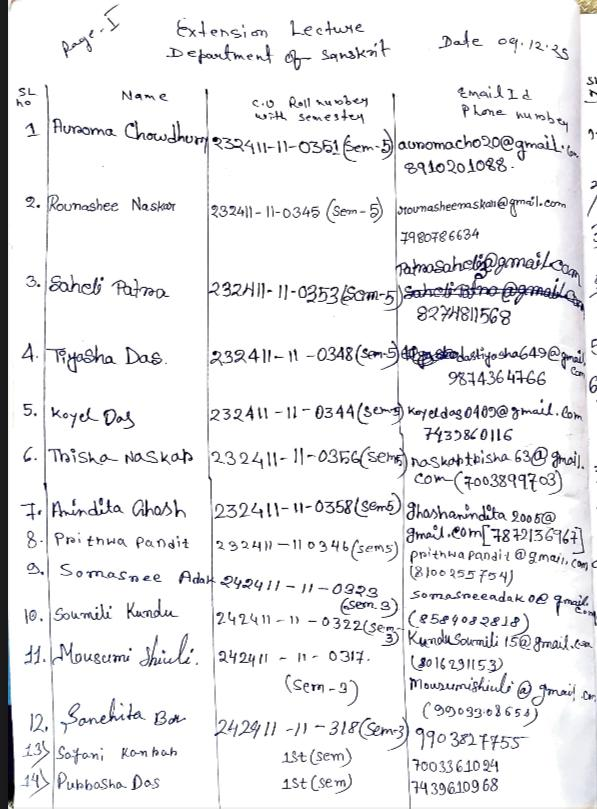 Page-I
Extension Lecture
Department of Sanskrit
Date 09.12.25
SL no Name C.U Roll number with semester Email Id Phone number
1 Auroma Chowdhury 232411-11-0351 (Sem-5) auromacho20@gmail.com
8910201088.
2. Rounashee Naskar 232411-11-0345 (Sem-5) rounasheenaskar@gmail.com
7980786634
Patrasaheli@gmail.com
3. Saheli Patra 232411-11-0353 (Sem-5)
8274811568
4. Tiyasha Das. 232411-11-0348 (Sem-5) dastiyasha649@gmail.com
9874364766
5. Koyel Das 232411-11-0344 (Sem5) Koyeldas0409@gmail.com
7439860116
6. Trisha Naskar 232411-11-0356 (Sem5) naskartrisha63@gmail.
com-(7003899703)
7. Anindita Ghosh 232411-11-0358 (Sem5) ghoshanindita2005@
gmail.com [7872136967]
8. Prithwa Pandit 232411-11-0346 (sem5) prithwapandit@gmail.com
(8100255754)
9. Somasree Adak 242411-11-0323 (Sem-3) somasreeadak0@gmail.com
(8584082818)
10. Soumili Kundu 242411-11-0322 (Sem-3) KunduSoumili15@gmail.com
(8016291153)
11. Mousumi Shiuli. 242411-11-0317. (Sem-3) Mousumishiuli@gmail.com
(9903308654)
12. Sanchita Bar 242411-11-318 (Sem-3) 9903827755
13) 1st (sem) 7003361024
14) Purbasha Das 1st (sem) 7439610968